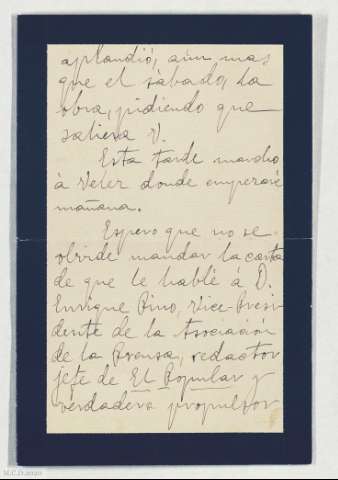 aplaudió, aún mas
que el sábado, la
obra, pidiendo que
saliera V.
Esta tarde marcho
á Velez donde empezaré
mañana.
Espero que no se
olvide mandar la carta
de que le hablé á D.
Enrique Pino, Vice-Presi-
dente de la Asociación
de la Prensa, redactor
jefe de El Popular y
verdadero propulsor